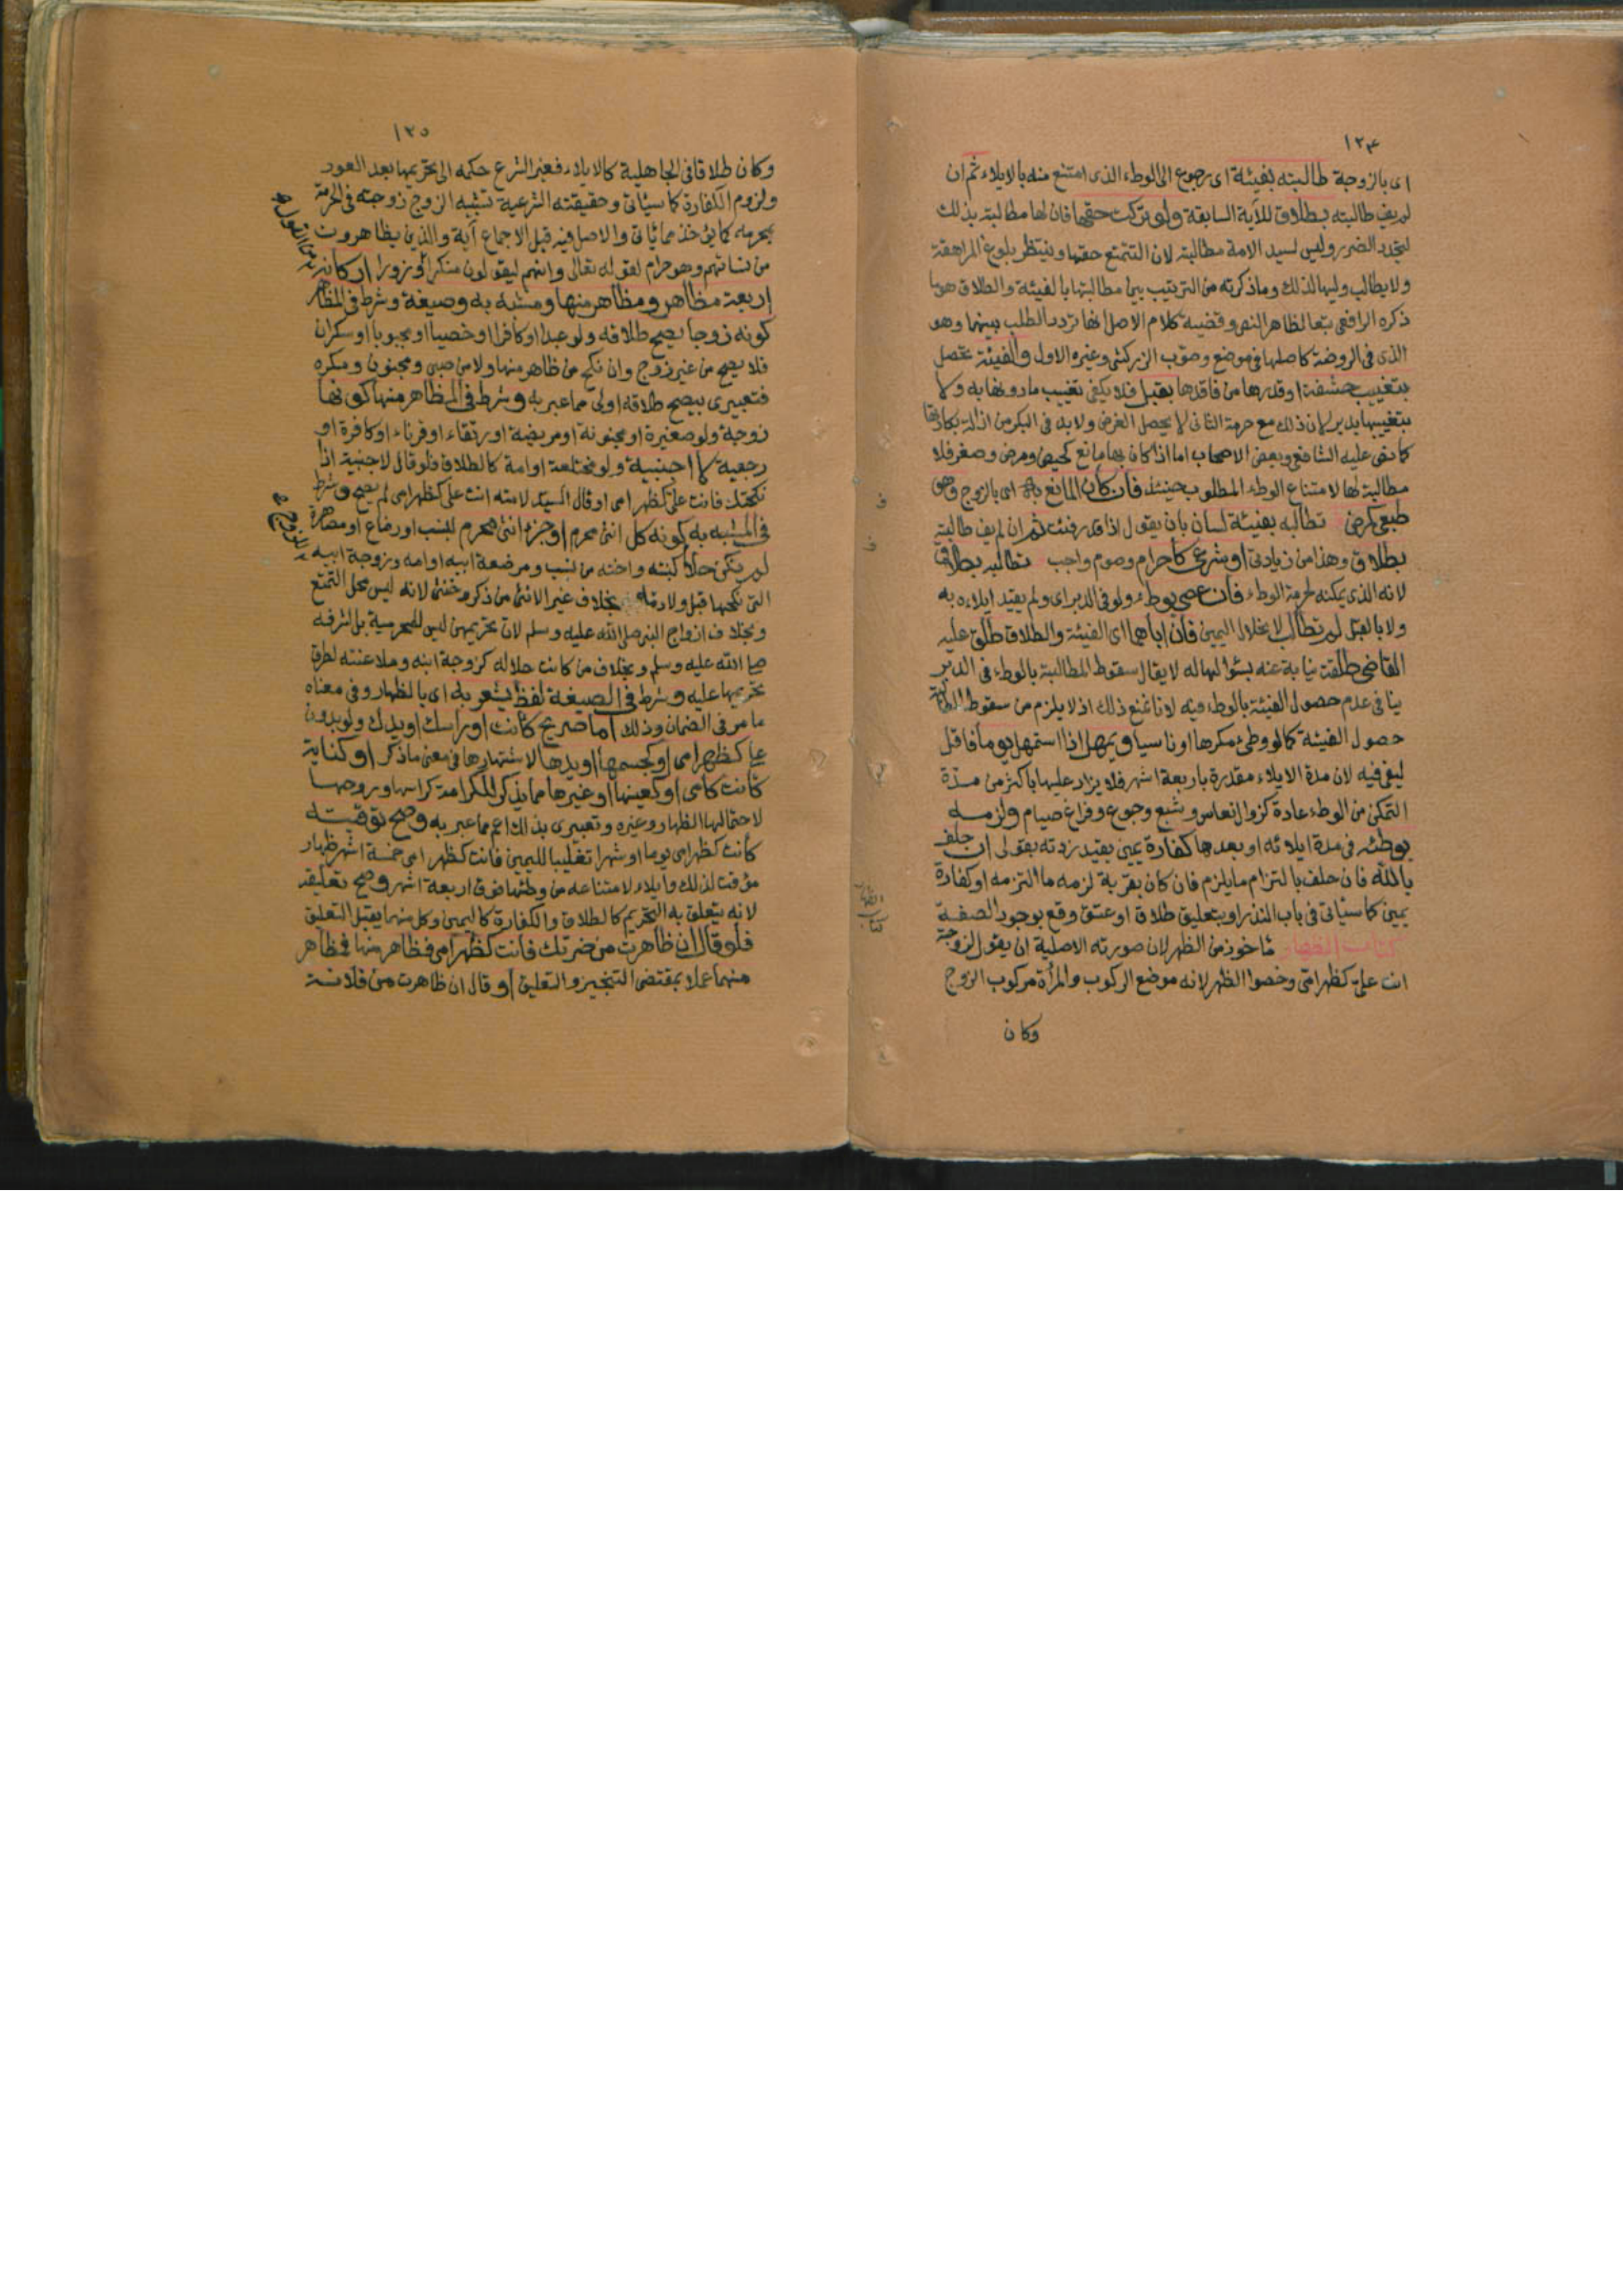 ١٢۴
اى بالزوجة طالبته بفيئة اى رجوع الى الوطء الذى امتنع منه بالايلاء ثم ان
لم يف طالبته بطلاق للآية السابقة ولو تركت حقها فان لها مطالبته بذلك
لتجدد الضرر وليس لسيد الامة مطالبته لان التمتع حقها وينتظر بلوغ المراهقة
ولا يطالب وليها لذلك وما ذكرته من الترتيب بين مطالبتها بالفيئة والطلاق هو ما
ذكره الرافعى تبعا لظاهر النص وقضية كلام الاصل انها تردد الطلب بينهما وهو
الذى فى الروضة كاصلها فى موضع وصوّب الزركشى وغيره الاول والفيئة تحصل
بتغييب حشفة او قدرها من فاقدها بقبل فلا يكفى تغييب مادونها به ولا
بتغييبها بدبر لان ذلك مع حرمة الثانى لا يحصل الغرض ولا بد فى البكر من ازالة بكارتها
كما نص عليه الشافعى وبعض الاصحاب اما اذا كان بها مانع كحيض ومرض وصغر فلا
مطالبة لها لامتناع الوطء المطلوب حينئذ فان كان المانع به اى بالزوج وهو
طبعى كمرض تطالبه بفيئة لسان بان يقول اذا قدرت فئت ثم ان لم يف طالبته
بطلاق وهذا من زيادتى او شرعى كاحرام وصوم واجب تطالبه بطلاق
لانه الذى يمكنه لحرمة الوطء فان عصى بوطء ولو فى الدبر اى ولم يقيد ايلاءه به
ولا بالقبل لم تطالب لانحلال اليمين فان اباهما اى الفيئة والطلاق طلق عليه
القاضى طلقة نيابة عنه بسؤالها له لا يقال سقوط المطالبة بالوطء فى الدبر
ينافى عدم حصول الفيئة بالوطء فيه لانا نمنع ذلك اذ لا يلزم من سقوط المطالبة
حصول الفيئة كما لو وطئ مكرها او ناسيا ويمهل اذا استمهل يوما فاقل
ليفئ فيه لان مدة الايلاء مقدرة باربعة اشهر فلا يزاد عليها باكثر من مدة
التمكن من الوطء عادة كزوال نعاس وشبع وجوع وفراغ صيام ولزمه
بوطئه فى مدة ايلائه او بعدها كفارة يمين بقيد زدته بقولى ان حلف
بالله فان حلف بالتزام ما يلزم فان كان بقربة لزمه ما التزمه او كفارة
يمين كما سيأتى فى باب النذر او بتعليق طلاق او عتق وقع بوجود الصفة
كتاب الظهار ماخوذ من الظهر لان صورته الاصلية ان يقول لزوجته
انت علىّ كظهر امّى وخصوا الظهر لانه موضع الركوب والمرأة مركوب الزوج
وكان
كتاب الظهار
ف
ف
١٢٥
وكان طلاقا فى الجاهلية كالايلاء فغير الشرع حكمه الى تحريمها بعد العود
ولزوم الكفارة كما سيأتى وحقيقته الشرعية تشبيه الزوج زوجته فى الحرمة
بمحرمه كما يؤخذ مما ياتى والاصل فيه قبل الاجماع آية والذين يظاهرون
من نسائهم وهو حرام لقوله تعالى وانهم ليقولون منكرا من القول وزورا اركانه
اربعة مظاهر ومظاهر منها ومشبه به وصيغة وشرط فى المظاهر
كونه زوجا يصح طلاقه ولو عبدا او كافرا او خصيا او مجبوبا او سكران
فلا يصح من غير زوج وان نكح من ظاهر منها ولا من صبى ومجنون ومكره
فتعبيرى بيصح طلاقه اولى مما عبر به وشرط فى المظاهر منها كونها
زوجة ولو صغيرة او مجنونة او مريضة او رتقاء او قرناء او كافرة او
رجعية لا اجنبية ولو مختلعة او امة كالطلاق فلو قال لاجنبية اذا
نكحتك فانت علىّ كظهر امى او قال السيد لامته انت على كظهر امى لم يصح وشرط
فى المشبه به كونه كل انثى محرم او جزء انثى محرم لنسب او رضاع او مصاهرة
لم يكن حلا كبنته واخته من نسب ومرضعة ابيه او امه وزوجة ابيه
التى نكحها قبل ولادته بخلاف غير الانثى من ذكر وخنثى لانه ليس محل التمتع
وبخلاف ازواج النبى صلى الله عليه وسلم لان تحريمهن ليس للمحرمية بل لشرفه
صلى الله عليه وسلم وبخلاف من كانت حلا له كزوجة ابنه وملاعنته لطرو
تحريمها عليه وشرط فى الصيغة لفظ يشعر به اى بالظهار وفى معناه
ما مر فى الضمان وذلك اما صريح كأنت او راسك او يدك ولو بدون
على كظهر امى او كجسمها او يدها لاشتهارها فى معنى ما ذكر او كناية
كأنت كامى او كعينها او غيرها مما يذكر للكرامة كراسها وروحها
لاحتمالها الظهار وغيره وتعبيرى بذلك اعم مما عبر به وصح توقيته
كأنت كظهر امى يوما او شهرا تغليبا لليمين فانت كظهر امى خمسة اشهر ظهار
مؤقت لذلك وايلاء لامتناعه من وطئها فوق اربعة اشهر وصح تعليقه
لانه يتعلق به التحريم كالطلاق والكفارة كاليمين وكل منهما يقبل التعليق
فلو قال ان ظاهرت من ضرتك فانت كظهر امى فظاهر منها فمظاهر
منهما عملا بمقتضى التنجيز والتعليق او قال ان ظاهرت من فلانة